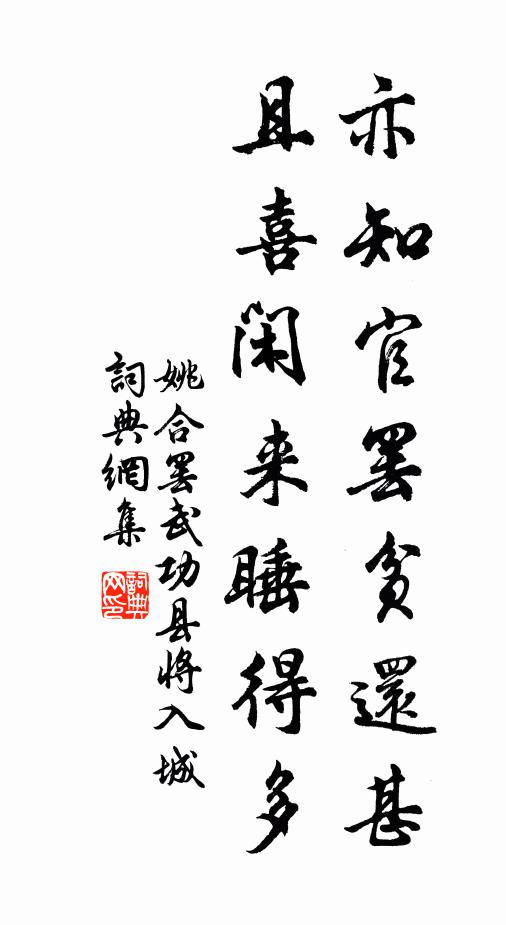 亦知官罢貧還甚
且喜閑来睡得多
姚合罢武功县將入城
詞典網集
詞典网印